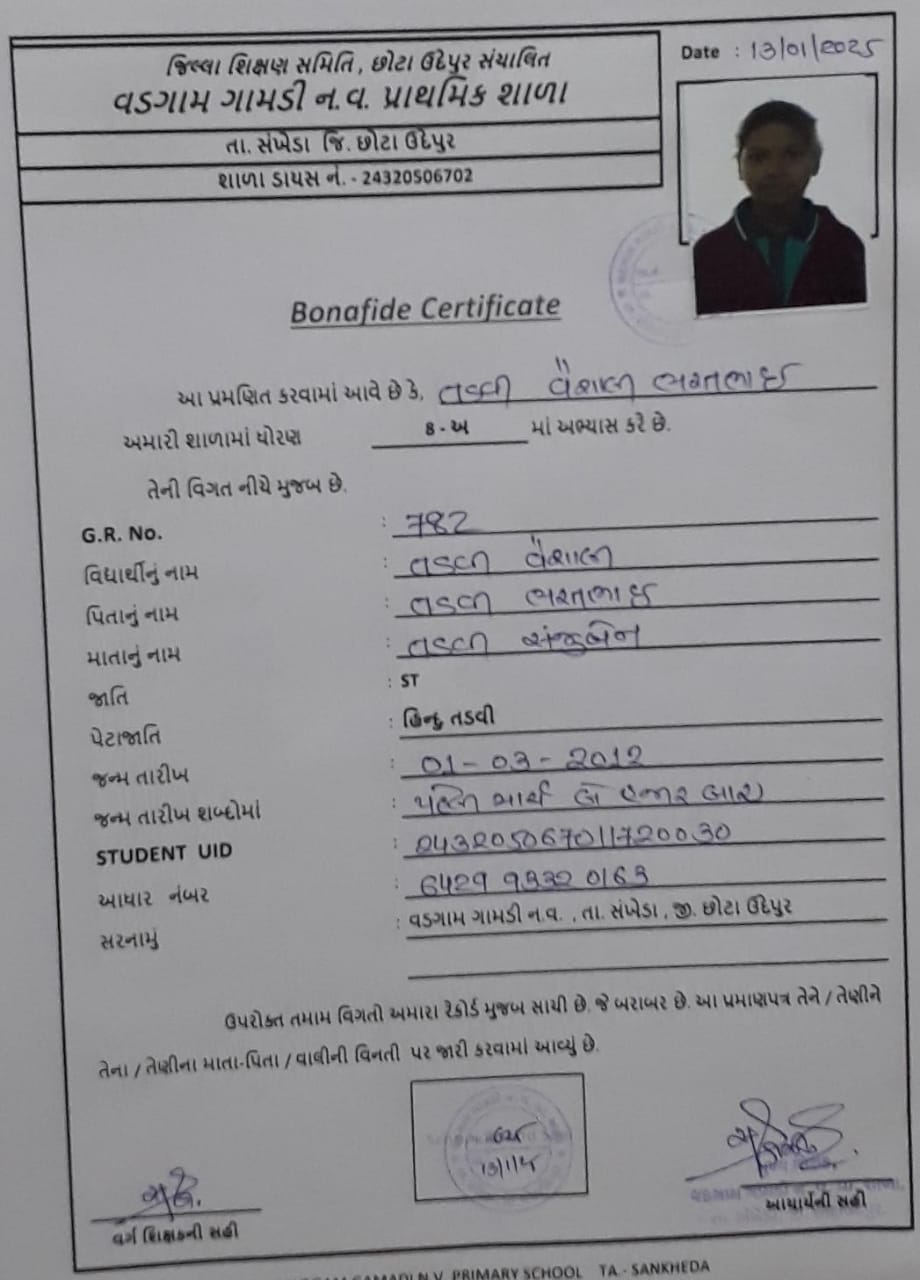 જિલ્લા શિક્ષણ સમિતિ, છોટા ઉદેપુર સંચાલિત
Date : 13/01/2025
વડગામ ગામડી ન.વ. પ્રાથમિક શાળા
તા. સંખેડા જિ. છોટા ઉદેપુર
શાળા ડાયસ નં. - 24320506702
Bonafide Certificate
આ પ્રમાણિત કરવામાં આવે છે કે, તડવી વૈશાલી ભરતભાઈ
અમારી શાળામાં ધોરણ 8 - અ માં અભ્યાસ કરે છે.
તેની વિગત નીચે મુજબ છે.
G.R. No. : 782
વિદ્યાર્થીનું નામ : તડવી વૈશાલી
પિતાનું નામ : તડવી ભરતભાઈ
માતાનું નામ : તડવી સંજુબેન
જાતિ : ST
પેટાજાતિ : હિન્દુ તડવી
જન્મ તારીખ : 01-03-2012
જન્મ તારીખ શબ્દોમાં : પહેલી માર્ચ બે હજાર બાર
STUDENT UID : 243205067011720030
આધાર નંબર : 6429 9332 0163
સરનામું : વડગામ ગામડી ન.વ. , તા. સંખેડા , જી. છોટા ઉદેપુર
ઉપરોક્ત તમામ વિગતો અમારા રેકોર્ડ મુજબ સાચી છે. જે બરાબર છે. આ પ્રમાણપત્ર તેને / તેણીને
તેના / તેણીના માતા-પિતા / વાલીની વિનતી પર જારી કરવામાં આવ્યું છે.
વર્ગ શિક્ષકની સહી
આચાર્યની સહી
GAMADI N.V. PRIMARY SCHOOL TA.- SANKHEDA